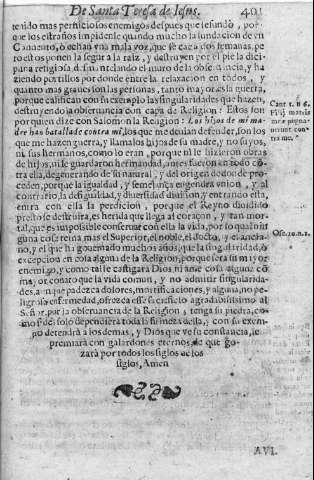 De Santa Teresa de Iesus. 401
tenido mas perniciosos enemigos despues que se fundó, por-
que los estraños impidense quando mucho la fundacion de vn
Conuento, ò echan vna mala voz, que se cae à dos semanas, pe
ro estos ponen la segur a la raiz, y destruyen por el pie la dici-
plina religiosa desmantelando el muro de la obseruancia, y ha
ziendo portillos por donde entre la relaxacion en todos, y
quanto mas graues son las personas, tanto mayor es la guerra,
porque califican con su exemplo las singularidades que hazen,
destruyendo la obseruancia con capa de Religion: Estos son
por quien dize con Salomon la Religion: Los hijos de mi ma-
dre han batallado contra mi, los que me deuian defender, son los
que me hazen guerra, y llamalos hijos de su madre, y no suyos,
ni sus hermanos, como lo eran, porque ni le hizieron obras
de hijos, ni le guardaron hermandad, antes fueron en todo cō
tra ella, degenerando de su natural, y del origen de donde pro-
ceden, porque la igualdad, y semejança engendra vnion, y al
contrario, la desigualdad, y diuersidad diuision, y entrando ella,
entra con ella la perdicion, porque el Reyno diuidido
presto se destruirá, es herida que llega al coraçon, y tan mor-
tal, que es impossible conseruar con ella la vida, por lo qual nin
guna cosa tema mas el Superior, el noble, el docto, y el ancia-
no, y el que ha gouernado muchos años, que la singularidad, ò
excepcion en cosa alguna de la Religion, porque será su mayor
enemigo, y como tal le castigara Dios, ni ame cosa alguna cō
mayor conato que la vida comun, y no admitir singularida-
des, aunque padezca dolores, mortificaciones, y alguna, no pe-
ligrosa enfermedad, ofrezca esse sacrificio agradabilissimo al
Señor, por la obseruancia de la Religion, tenga su piedra, co-
mo si del solo dependiera toda la firmeza della, con su exem-
plo detendrà a los demas, y Dios que ve su constancia, le
premiarà con galardones eternos, de que go-
zarà por todos los siglos de los
siglos, Amen
Cant 1. n 6.
Filij matris
meæ pugna-
uerunt con-
tra me.
Ose. 10. n. 2.
AVI.